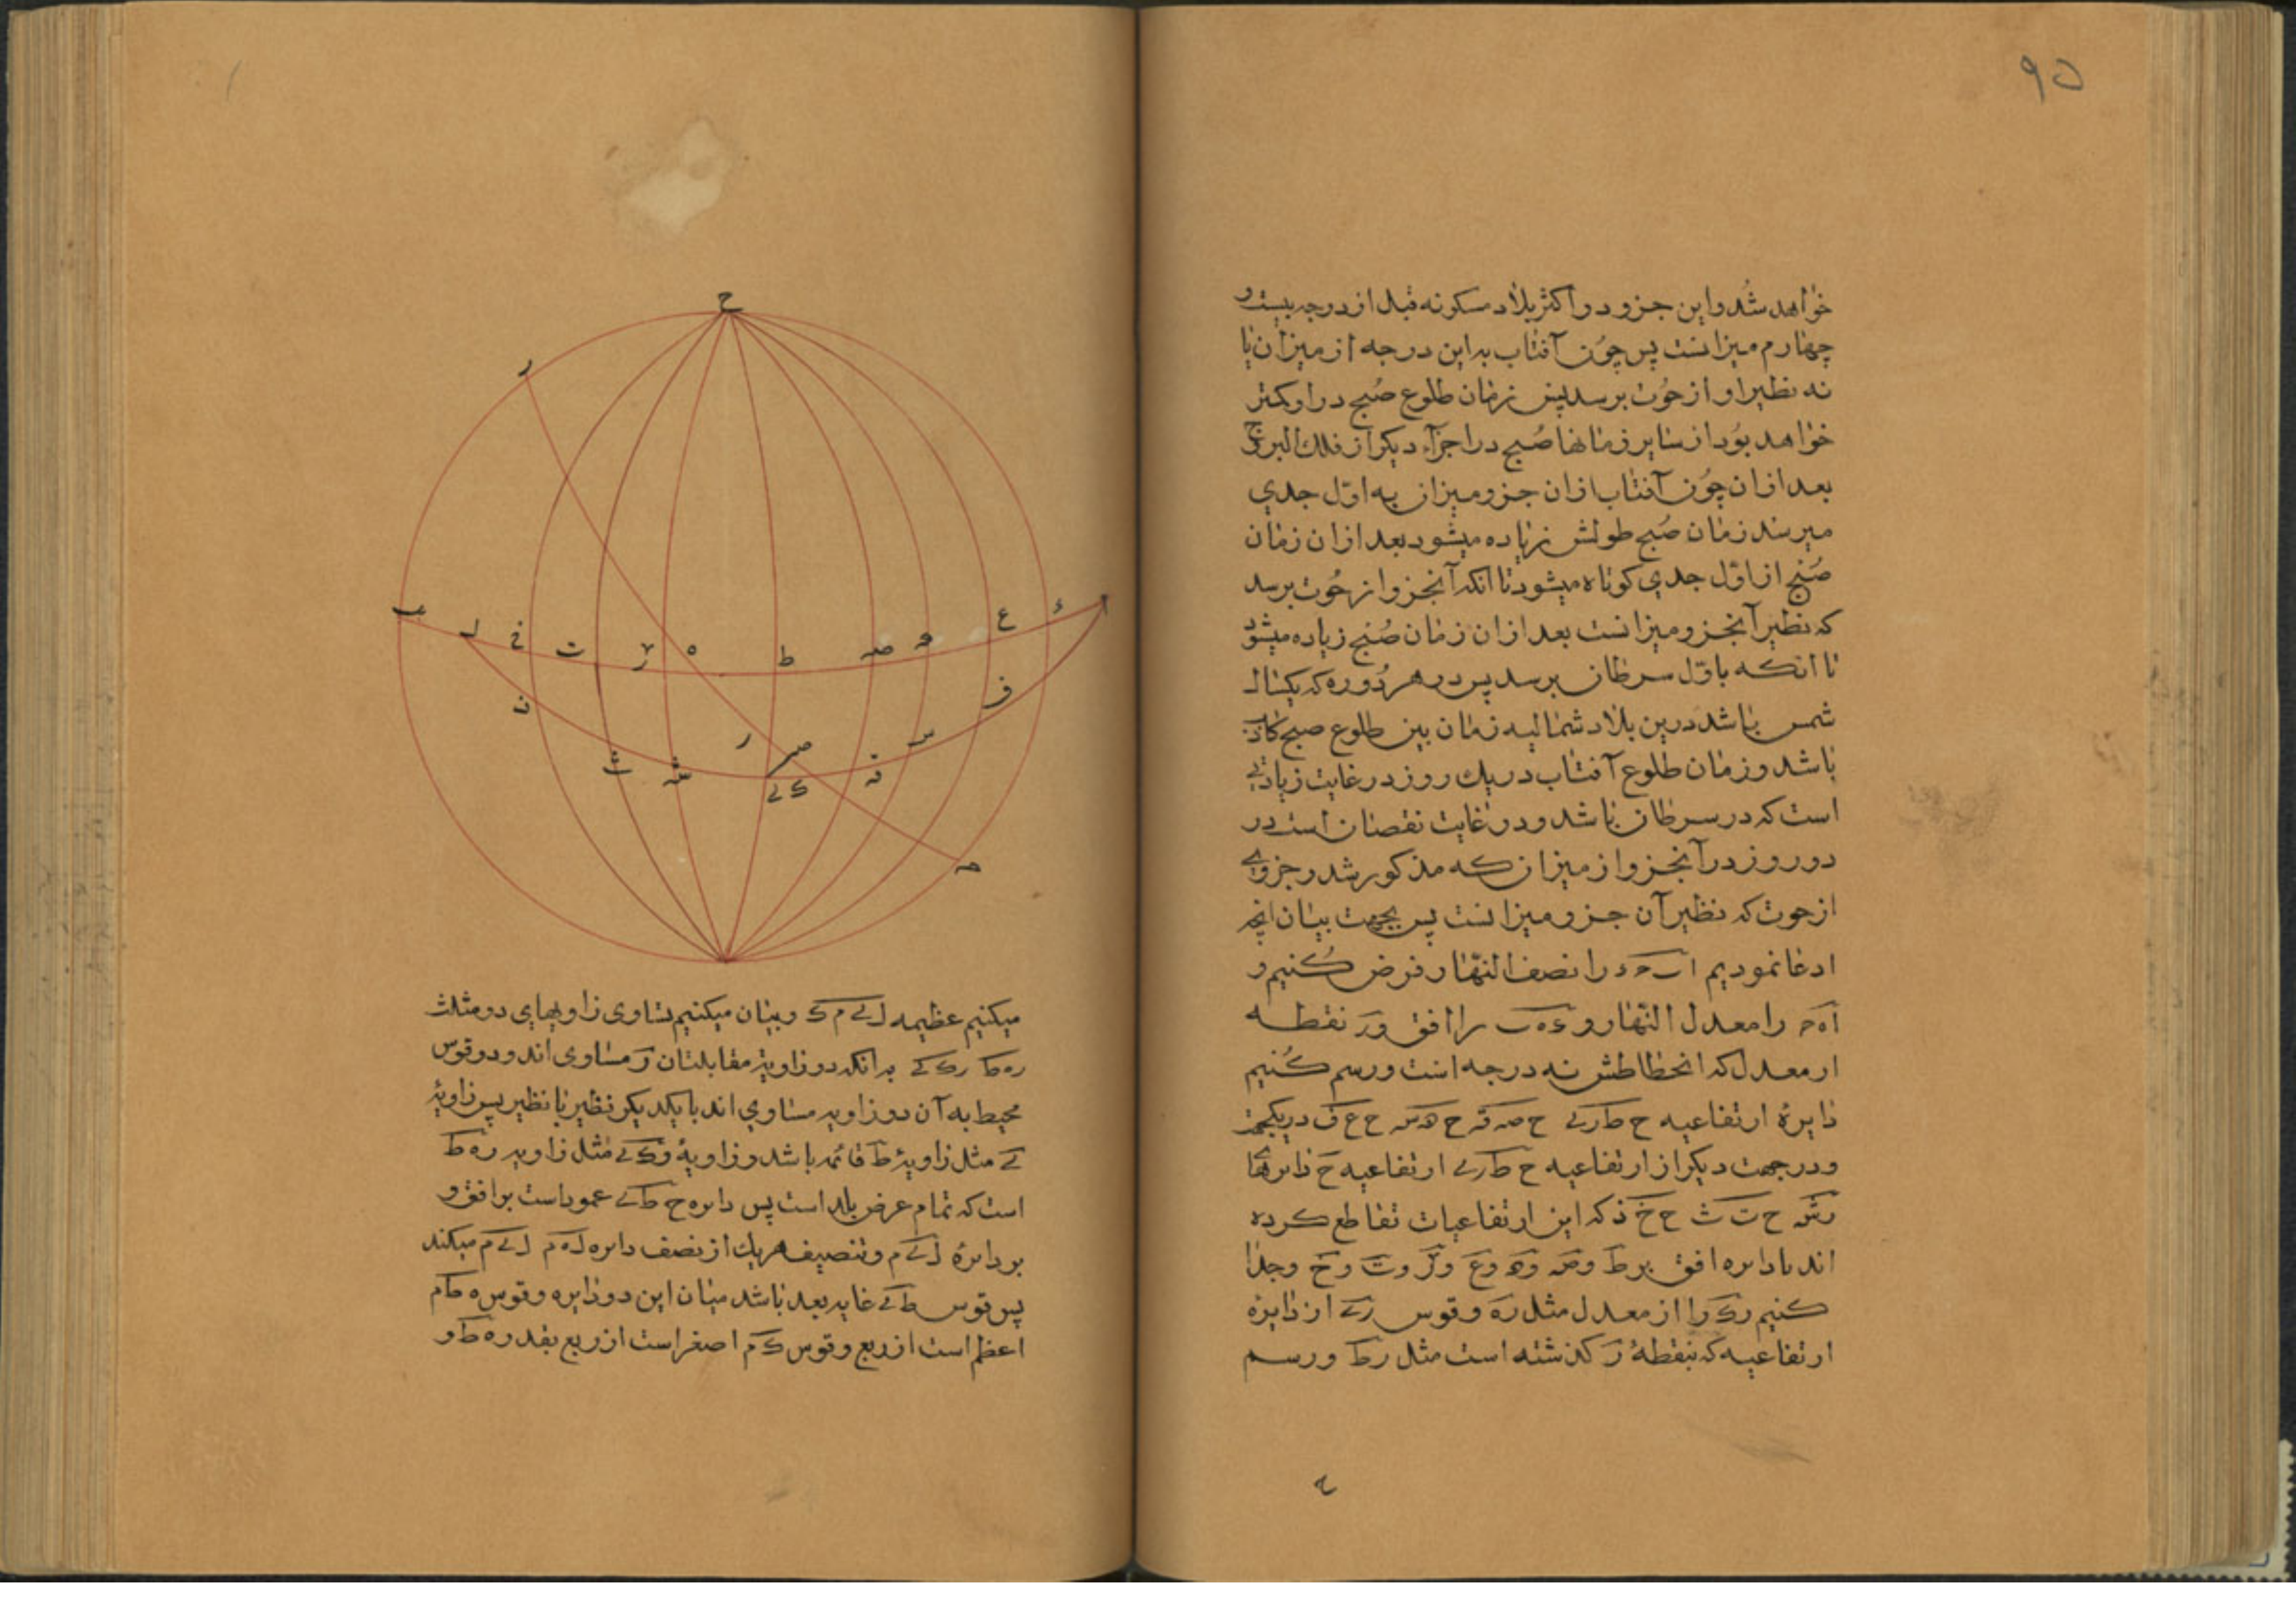 ۹۵
خواهد شد و این جزو در اکثر بلاد مسکونه قبل از درجه بیست و
چهارم میزانست پس چون آفتاب به این درجه از میزان یا
نه نظیر او از حوت برسد پس زمان طلوع صبح در او کمتر
خواهد بود از سایر زمانها صبح در اجزآء دیگر از فلك البروج
بعد از ان چون آفتاب از ان جزو میزان به اوّل جدي
میرسد زمان صبح طولش زیاده میشود بعد از ان زمان
صبح از اوّل جدي کوتاه میشود تا انکه آنجزو از حوت برسد
که نظیر آنجزو میزانست بعد از ان زمان صبح زیاده میشود
تا انکه باوّل سرطان برسد پس در هر دوره که یکسال
شمس باشد درین بلاد شمالیه زمان بین طلوع صبح کاذب
باشد و زمان طلوع آفتاب در یك روز در غایت زیادتی
است که در سرطان باشد و در غایت نقصان است در
دو روز در آنجزو از میزان که مذکور شد و جزوی
از حوت که نظیر آن جزو میزانست پس بجهت بیان انچه
ادعا نمودیم ا ب ح د را نصف النهار فرض کنیم و
اه ح را معدل النهار و ء ه ب را افق و ر نقطه
از معدل که انحطاطش نه درجه است و رسم کنیم
دایرهٔ ارتفاعیه ح ط ر ے ح صه قه ح ه س ح ع ف در یکجهت
و در جهت دیگر از ارتفاعیه ح ط ر ے ارتفاعیه ح دایرهای
ح ت ث ح خ ذ که این ارتفاعیات تقاطع کرده
اند با دایره افق بر ط و صه و ه و ع و و ت و خ و جدا
کنیم ر ك را از معدل مثل ر ه و قوس ر ے از دایرهٔ
ارتفاعیه که بنقطهٔ ر گذشته است مثل ر ط و رسم
ح
ر
ب
ل
خ
ت
ه
ط
صه
ع
ء
ا
ن
ث
ر
ص
ك ے
قه
س
ف
ح
میکنیم عظیمه ل ے م ك و بیان میکنیم تساوی زاویهای دو مثلث
ر ه ط ر ك ے به انکه دو زاویهٔ مقابلتان ر مساوی اند و دو قوس
محیط به آن دو زاویه مساوي اند با یکدیکر نظیر با نظیر پس زاویهٔ
ے مثل زاویهٔ ط قائمه باشد و زاویهٔ ر ك ے مثل زاویه ر ه ط
است که تمام عرض بلد است پس دایره ح ط ے عمود است بر افق و
بر دایرهٔ ل ے م و تنصیف هریك از نصف دایره ل ه م ل ے م میکند
پس قوس ط ے غایه بعد باشد میان این دو دایره و قوس ه ط م
اعظم است از ربع و قوس ك م اصغر است از ربع بقدر ر ه ط و